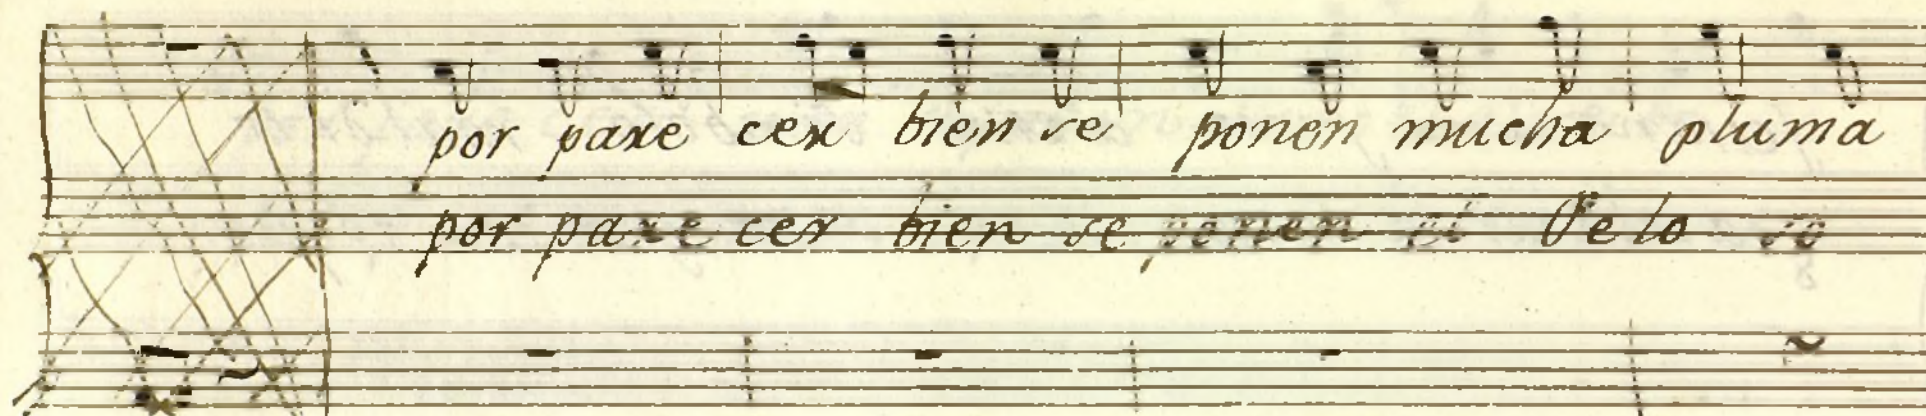 por pare cer bien se ponen mucha pluma
por pare cer bien se ponen el Velo so